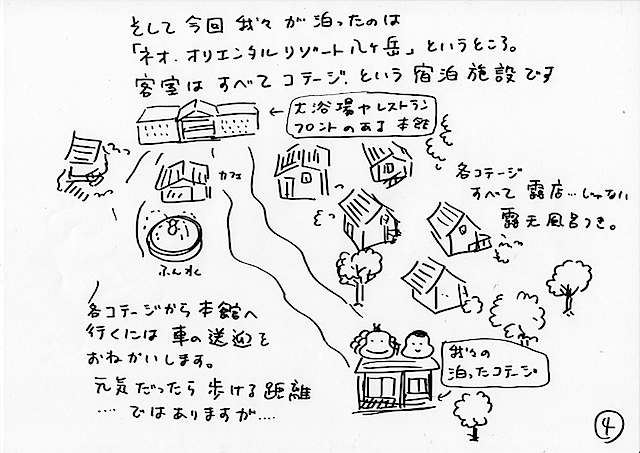 そして今回 我々が泊ったのは
「ネオ.オリエンタルリゾート八ヶ岳」というところ。
客室は すべて コテージ.という 宿泊施設です
← 大浴場やレストラン
フロントのある 本館
カフェ
ふんすい
各コテージ
すべて 露店…じゃない
露天風呂つき。
各コテージから 本館へ
行くには 車の送迎を
おねがいします。
元気だったら 歩ける距離
…. ではありますが….
我々の
泊ったコテージ
4